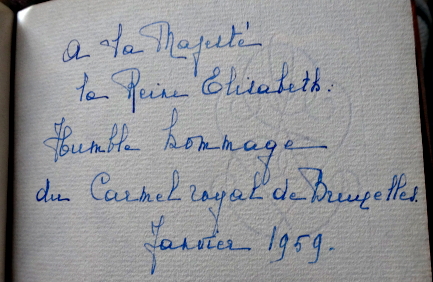 A Sa Majesté
la Reine Elisabeth.
Humble hommage
du Carmel royal de Bruxelles.
Janvier 1959.